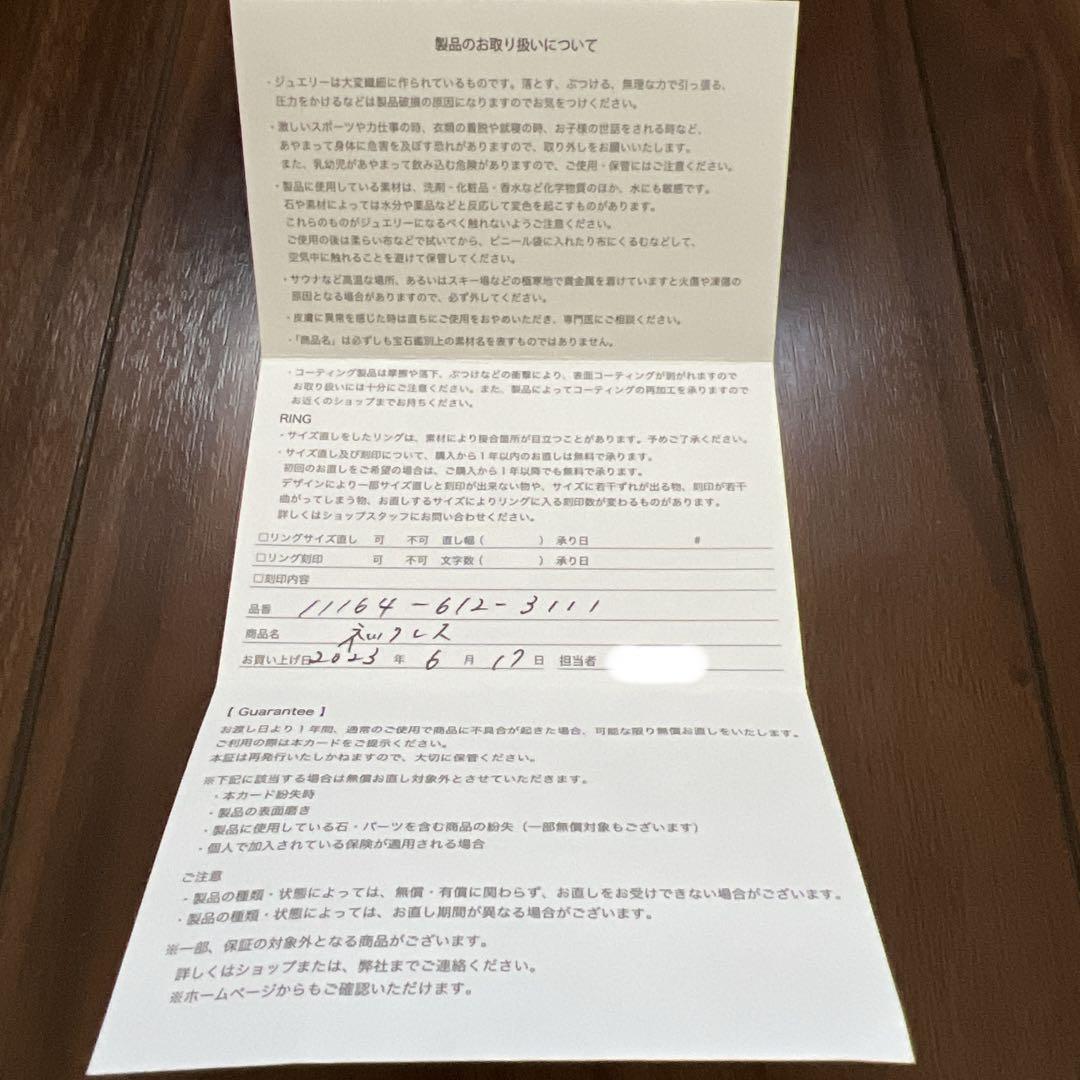 製品のお取り扱いについて
・ジュエリーは大変繊細に作られているものです。落とす、ぶつける、無理な力で引っ張る、
圧力をかけるなどは製品破損の原因になりますのでお気をつけください。
・激しいスポーツや力仕事の時、衣類の着脱や就寝の時、お子様の世話をされる時など、
あやまって身体に危害を及ぼす恐れがありますので、取り外しをお願いいたします。
また、乳幼児があやまって飲み込む危険がありますので、ご使用・保管にはご注意ください。
・製品に使用している素材は、洗剤・化粧品・香水など化学物質のほか、水にも敏感です。
石や素材によっては水分や薬品などと反応して変色を起こすものがあります。
これらのものがジュエリーになるべく触れないようご注意ください。
ご使用の後は柔らい布などで拭いてから、ビニール袋に入れたり布にくるむなどして、
空気中に触れることを避けて保管してください。
・サウナなど高温な場所、あるいはスキー場などの極寒地で貴金属を着けていますと火傷や凍傷の
原因となる場合がありますので、必ず外してください。
・皮膚に異常を感じた時は直ちにご使用をおやめいただき、専門医にご相談ください。
・「商品名」は必ずしも宝石鑑別上の素材名を表すものではありません。
・コーティング製品は摩擦や落下、ぶつけなどの衝撃により、表面コーティングが剥がれますので
お取り扱いには十分にご注意ください。また、製品によってコーティングの再加工を承りますので
お近くのショップまでお持ちください。
RING
・サイズ直しをしたリングは、素材により接合箇所が目立つことがあります。予めご了承ください。
・サイズ直し及び刻印について、購入から1年以内のお直しは無料で承ります。
初回のお直しをご希望の場合は、ご購入から1年以降でも無料で承ります。
デザインにより一部サイズ直しと刻印が出来ない物や、サイズに若干ずれが出る物、刻印が若干
曲がってしまう物、お直しするサイズによりリングに入る刻印数が変わるものがあります。
詳しくはショップスタッフにお問い合わせください。
□リングサイズ直し 可 不可 直し幅( ) 承り日 #
□リング刻印 可 不可 文字数( ) 承り日
□刻印内容
品番 11164-612-3111
商品名 ネックレス
お買い上げ日2023年 6 月 17 日 担当者
【 Guarantee 】
お渡し日より1年間、通常のご使用で商品に不具合が起きた場合、可能な限り無償お直しをいたします。
ご利用の際は本カードをご提示ください。
本証は再発行いたしかねますので、大切に保管ください。
※下記に該当する場合は無償お直し対象外とさせていただきます。
・本カード紛失時
・製品の表面磨き
・製品に使用している石・パーツを含む商品の紛失(一部無償対象もございます)
・個人で加入されている保険が適用される場合
ご注意
・製品の種類・状態によっては、無償・有償に関わらず、お直しをお受けできない場合がございます。
・製品の種類・状態によっては、お直し期間が異なる場合がございます。
※一部、保証の対象外となる商品がございます。
詳しくはショップまたは、弊社までご連絡ください。
※ホームページからもご確認いただけます。